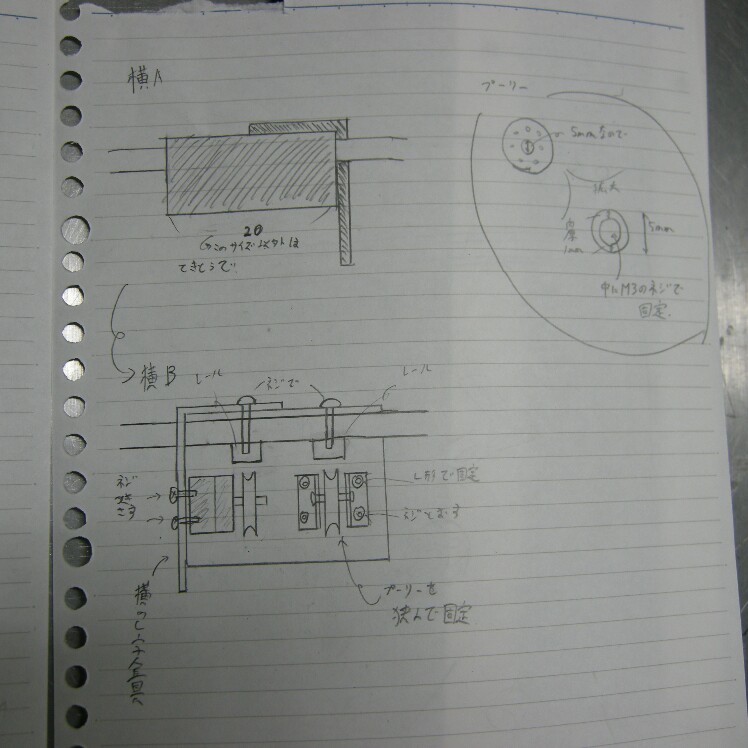 横A
プーリー
5mmなので
拡大
20
このサイズ以外は
てきとうで
厚
1mm
5mm
中にM3のネジで
固定
横B
レール
ネジで
レール
ネジ
つき
さす
L形で固定
ネジとおす
プーリーを
挟んで固定
横のL字金具へ